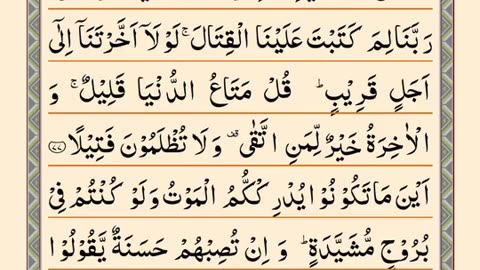 رَبَّنَا لِمَ كَتَبْتَ عَلَيْنَا الْقِتَالَ ۚ لَوْلَاۤ اَخَّرْتَنَاۤ اِلٰۤى
اَجَلٍ قَرِيْبٍ ؕ قُلْ مَتَاعُ الدُّنْيَا قَلِيْلٌ ۚ وَ
الْاٰخِرَةُ خَيْرٌ لِّمَنِ اتَّقٰى ۫ وَلَا تُظْلَمُوْنَ فَتِيْلًا ﴿۷۷﴾
اَيْنَ مَا تَكُوْنُوْا يُدْرِكْكُّمُ الْمَوْتُ وَلَوْ كُنْتُمْ فِيْ
بُرُوْجٍ مُّشَيَّدَةٍ ؕ وَ اِنْ تُصِبْهُمْ حَسَنَةٌ يَّقُوْلُوْا